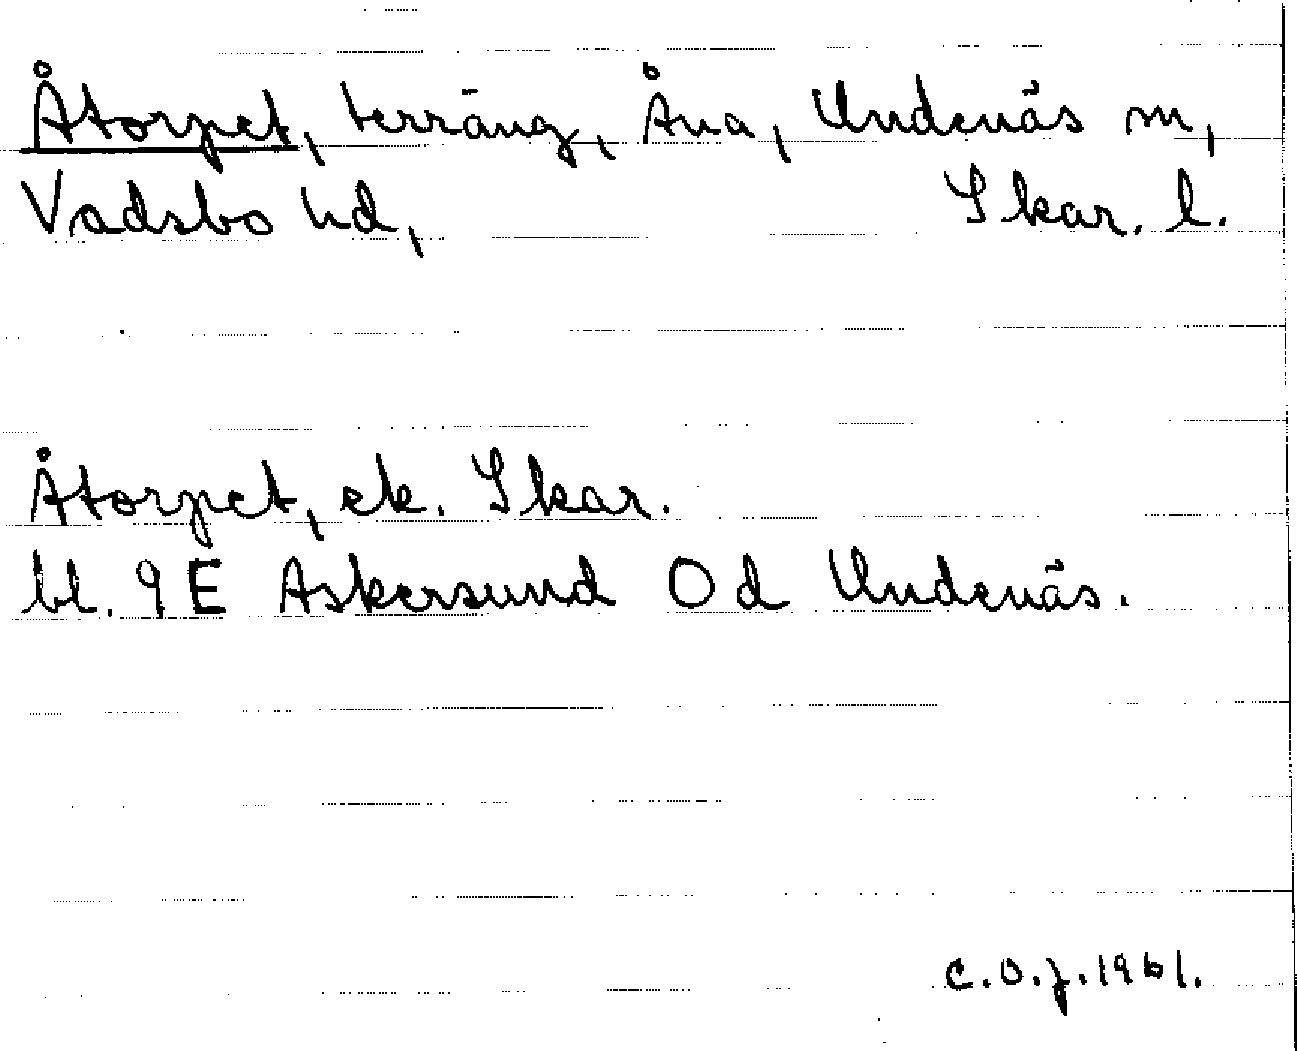 Åtorpet, terräng, Åna, Undenäs sn,
Vadsbo hd, Skar. l.
Åtorpet, ek. Skar.
bl. 9 E Askersund 0 d Undenäs.
C.O.J. 1961.